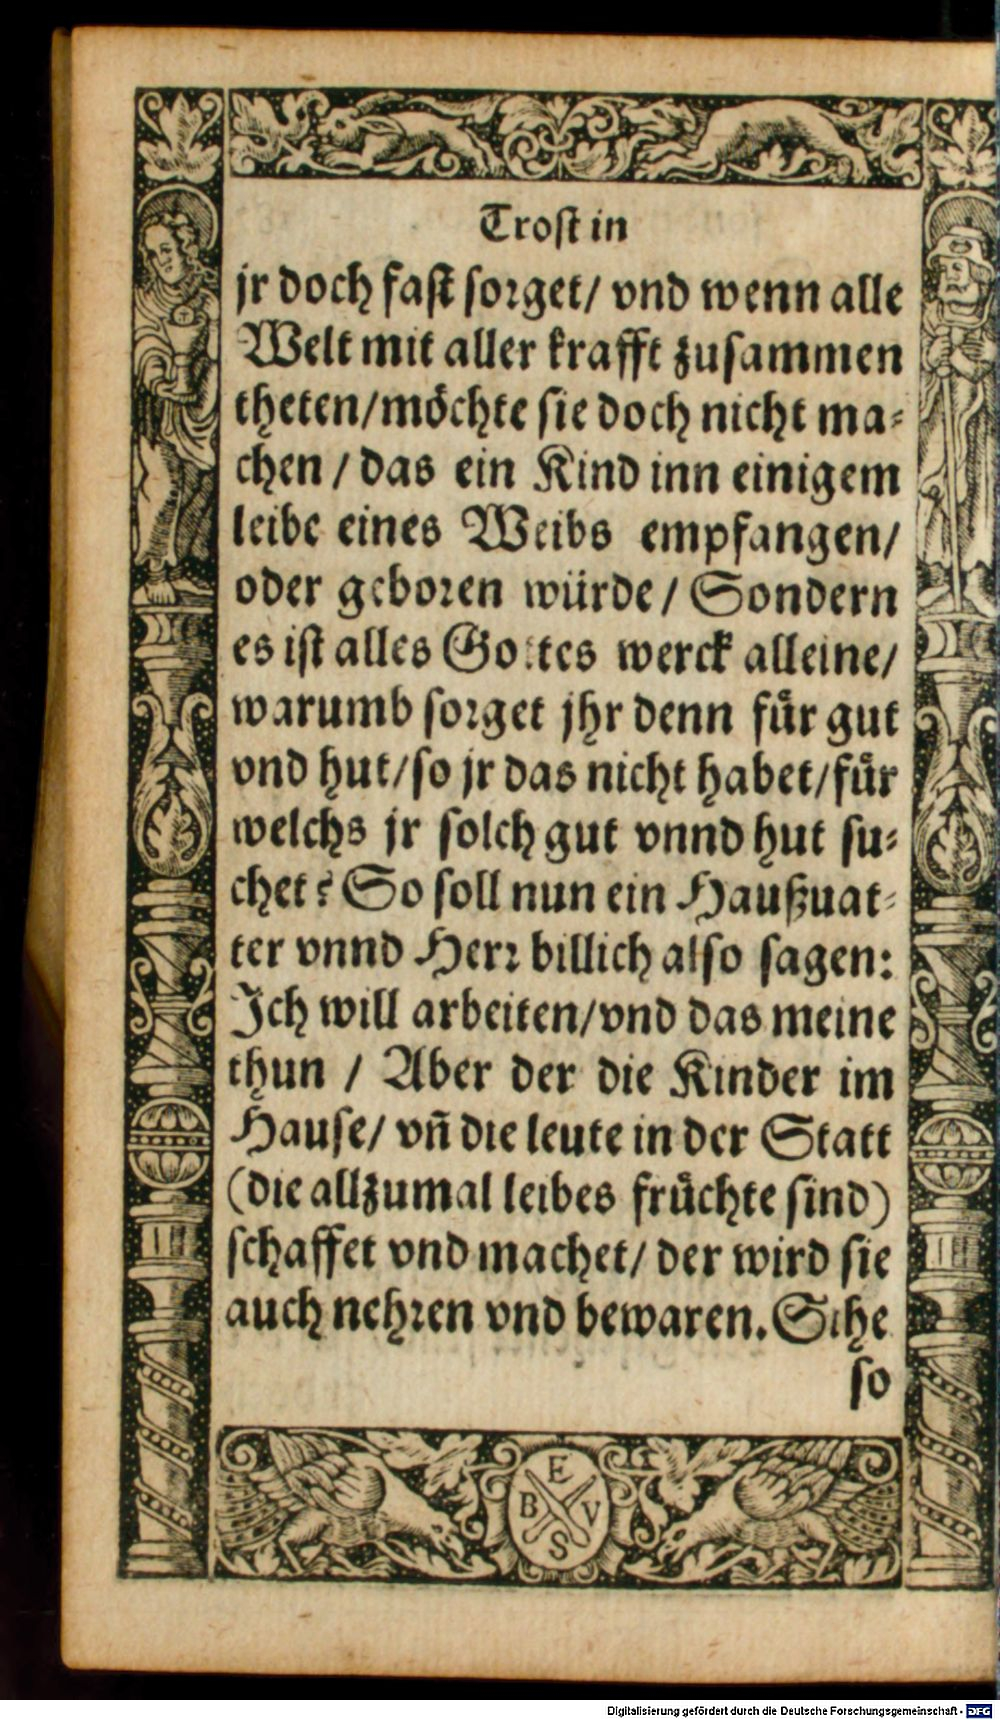 Trost in
jr doch fast sorget/ vnd wenn alle
Welt mit aller krafft zusammen
theten/möchte sie doch nicht ma⸗
chen / das ein Kind inn einigem
leibe eines Weibs empfangen/
oder geboren würde/ Sondern
es ist alles Gottes werck alleine/
warumb sorget jhr denn für gut
vnd hut/so jr das nicht habet/für
welchs jr solch gut vnnd hut su⸗
chet? So soll nun ein Haußuat⸗
ter vnnd Herr billich also sagen:
Ich will arbeiten/vnd das meine
thun / Aber der die Kinder im
Hause/ vñ die leute in der Statt
(die allzumal leibes früchte sind)
schaffet vnd machet/ der wird sie
auch nehren vnd bewaren. Sihe
so
E
B V
S
Digitalisierung gefördert durch die Deutsche Forschungsgemeinschaft - DFG